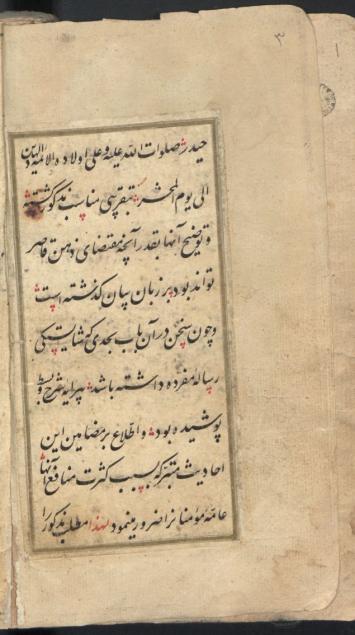 ۳
حیدر صلوات الله علیه و علی اولاده الائمة الدین
الی یوم المحشر بتقریبی مناسب مذکور گشته
و توضیح آنها بقدر آنچه مقتضای ذهن قاصر
تواند بود بر زبان بیان گذشته است
و چون سخن در آن باب بحدی که شایستگی
رساله مفرده داشته باشد پیرایه شرح و بسط
پوشیده بود و اطلاع بر مضامین این
احادیث متبرکه بسبب کثرت منافع آنها
عامه مؤمنانرا ضرور مینمود لهذا مطلب مذکور را